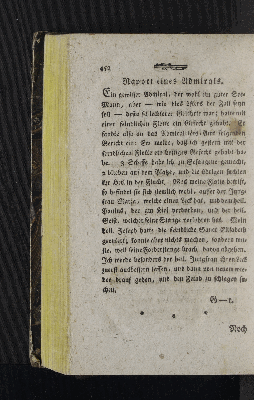 452
Rapport eines Admirals.
Ein gewisser Admiral, der wohl ein guter See-
Mann, aber — wie dies öfters der Fall seyn
soll — desto schlechter war; hatte mit
einer feindlichen Flotte ein Gefecht gehabt. Er
sandte also an das Admiralitäts-Amt folgenden
Bericht ein: Ich melde, daß ich gestern mit der
feindlichen Flotte ein heftiges Gefecht gehabt ha-
be. 3 Schiffe habe ich zu Gefangene gemacht,
blieben auf dem Platze, und die übrigen suchten
ihr Heil in der Flucht. Was meine Flotte betrift,
so befindet sie sich ziemlich wohl, außer der Jung-
frau Maria, welche einen Leck hat, und dem heil.
Paulus, der am Kiel verdorben, und der heil.
Geist, welcher seine Stange verlohren hat. Mein
heil. Joseph hatte die feindliche Sanct Elisabeth
geentert, konnte aber nichts machen, sondern mus-
ste, weil seine Forderstenge brach, davon abgehen.
Ich werde besonders der heil. Jungfrau ihren Leck
zuerst ausbessern lassen, und dann von neuem wie-
der drauf gehen, und den Feind zu schlagen su-
chen.
G—t.
* * *
Noch